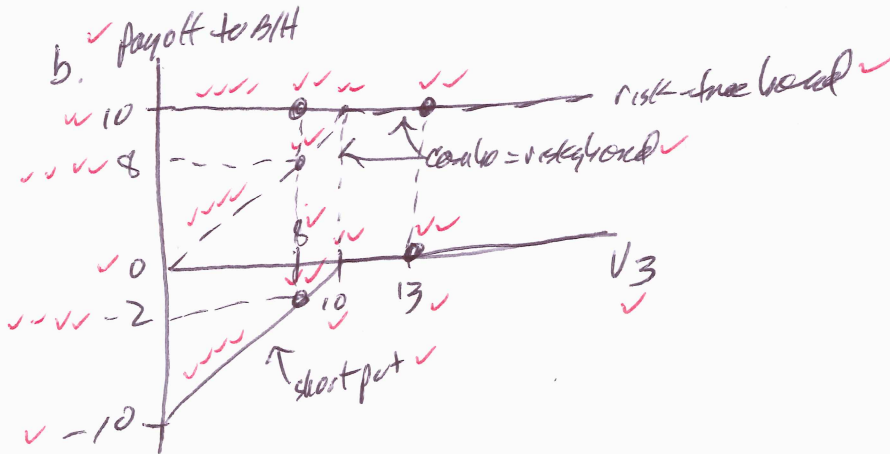 b. Payoff to B/H
10
risk-free bond
8
combo = risky bond
8
0
10
13
V3
-2
short put
-10